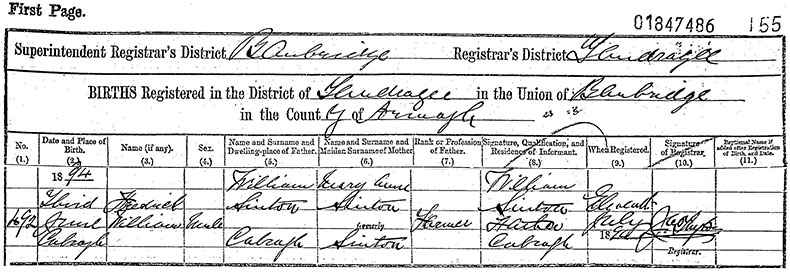 First Page.
01847486 155
Superintendent Registrar's District Banbridge Registrar's District Tandragee
BIRTHS Registered in the District of Tandragee in the Union of Banbridge
in the County of Armagh
No. (1.) Date and Place of Birth. (2.) Name (if any). (3.) Sex. (4.) Name and Surname and Dwelling-place of Father. (5.) Name and Surname and Maiden Surname of Mother. (6.) Rank or Profession of Father. (7.) Signature, Qualification, and Residence of Informant. (8.) When Registered. (9.) Signature of Registrar. (10.) Baptismal Name if added after Registration of Birth, and Date. (11.)
1894 William Mary Anne William
Third Fredrick Sinton Sinton Sinton Eleventh
June William Male formerly Farmer Father July
Cabragh Cabragh Sinton Cabragh 1894 Registrar.